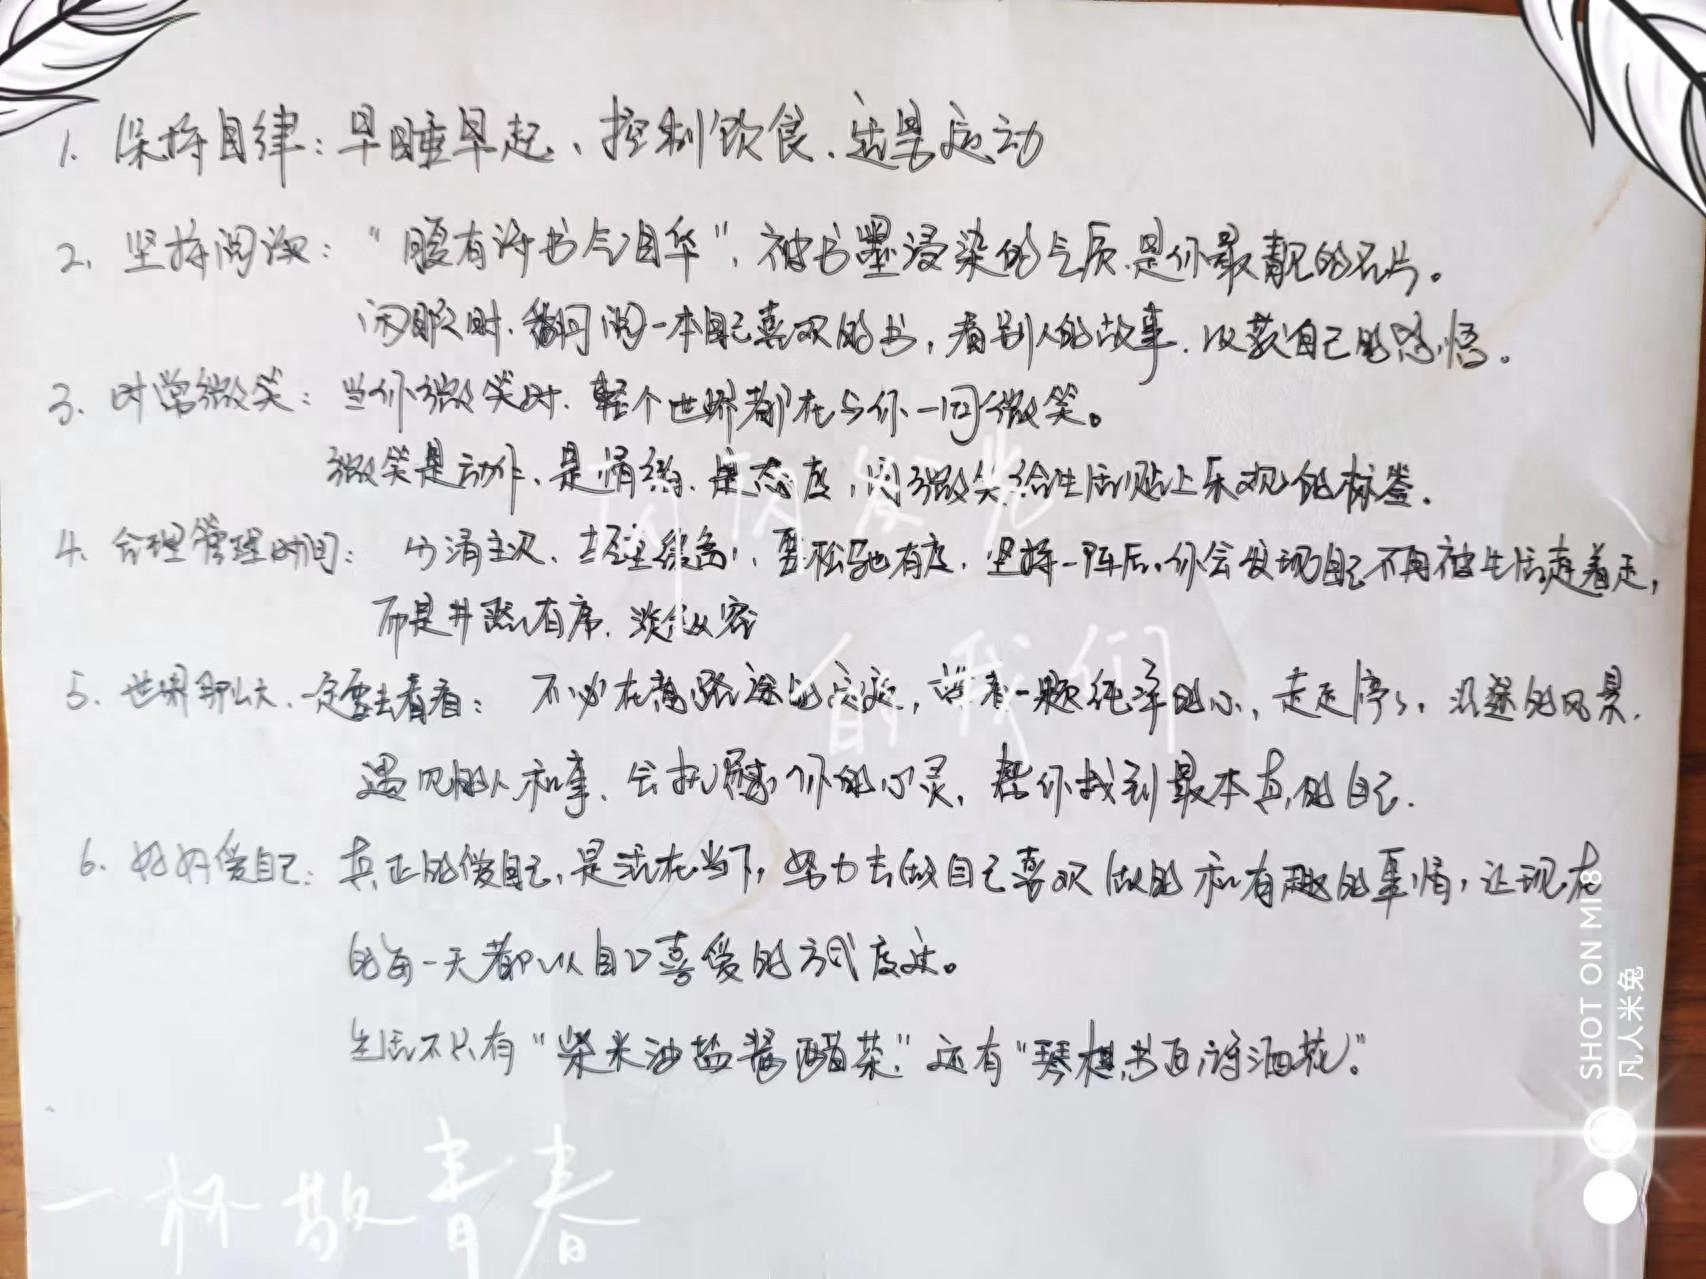 1. 保持自律：早睡早起、控制饮食、适量运动
2. 坚持阅读："腹有诗书气自华"，被书墨浸染的气质，是你最靓的名片。
闲暇时，翻阅一本自己喜欢的书，看别人的故事，收获自己的感悟。
3. 时常微笑：当你微笑时，整个世界都在与你一同微笑。
微笑是动作、是情绪、是态度，用微笑给生活贴上乐观的标签。
4. 合理管理时间：分清主次、主轻缓急，要松弛有度，坚持一阵后，你会发现自己不再被生活赶着走，
而是井然有序、淡定从容
5. 世界那么大，一定要去看看：不必在意路途的远近，带着一颗纯净的心，走走停停，沿途的风景，
遇见的人和事，会抚慰你的心灵，帮你找到最本真的自己.
6. 好好爱自己：真正的爱自己，是活在当下，努力去做自己喜欢做的和有趣的事情，让现在
的每一天都以自己喜爱的方式度过。
生活不只有"柴米油盐酱醋茶"，还有"琴棋书画诗酒花"。
闪闪发光
的我们
一杯敬青春
SHOT ON MI 8
凡人米兔